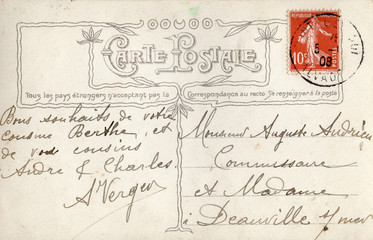 CARTE POSTALE
Tous les pays étrangers n'acceptent pas la Correspondance au recto. Se renseigner à la poste
REPUBLIQUE FRANÇAISE
10c
5
08
Bons souhaits de votre
cousine Berthe, et
de vos cousins
André & Charles
A Verger
Monsieur Auguste Andrieu
Commissaire
et Madame
à Deauville s/mer